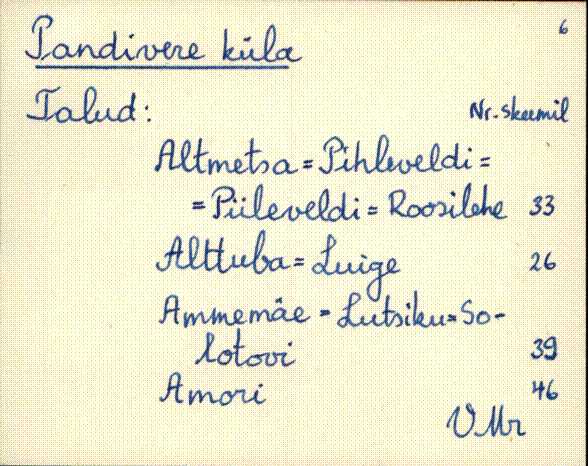 6
Pandivere küla
Talud:
Nr. skeemil
Altmetsa = Pihleveldi =
= Piileveldi = Roosilehe 33
Alttuba = Luige 26
Ammemäe = Lutsiku = So-
lotovi 39
Amori 46
VMr